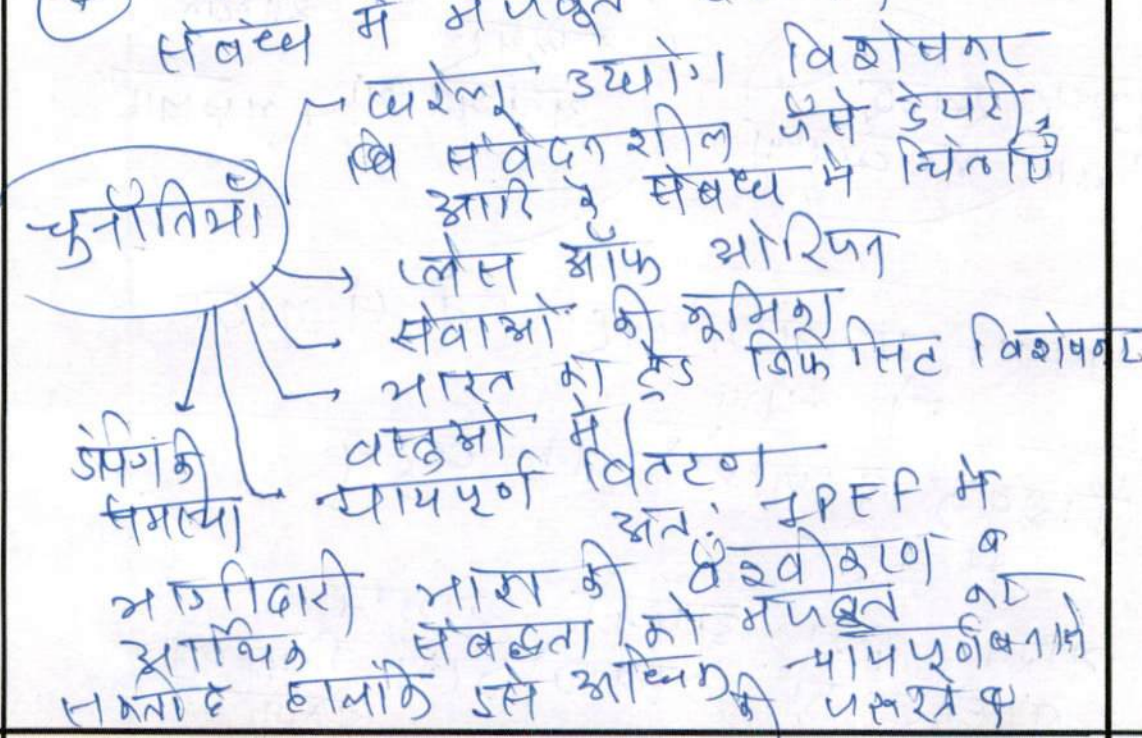 संबंध में मजबूत
घरेलू उद्योग विशेषकर
संवेदनशील जैसे डेयरी
आदि के संबंध में चिंताएं
चुनौतियां
प्लेस ऑफ ओरिजन
सेवाओं की भूमिका
भारत का ट्रेड डिफिसिट विशेषकर
वस्तुओं में।
डंपिंग की
समस्या
न्यायपूर्ण वितरण
अतः IPEF में
भागीदारी भारत की वैश्वीकरण व
आर्थिक संबद्धता को मजबूत कर
सकता है हालांकि इसे अधिक न्यायपूर्ण बनाने
की जरूरत है